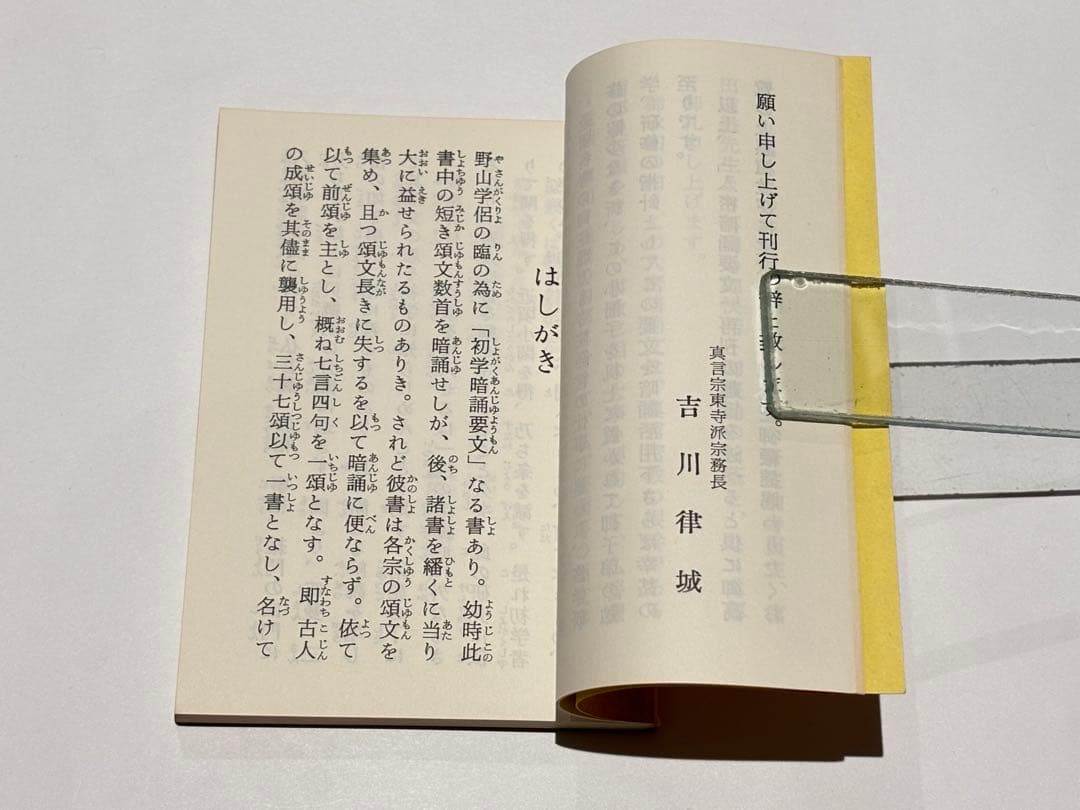 願い申し上げて刊行の辞と致します。
真言宗東寺派宗務長
吉川律城
はしがき
野山学侶の臨の為に「初学暗誦要文」なる書あり。幼時此
書中の短き頌文数首を暗誦せしが、後、諸書を繙くに当り
大に益せられたるものありき。されど彼書は各宗の頌文を
集め、且つ頌文長きに失するを以て暗誦に便ならず。依て
以て前頌を主とし、概ね七言四句を一頌となす。即古人
の成頌を其儘に襲用し、三十七頌以て一書となし、名けて